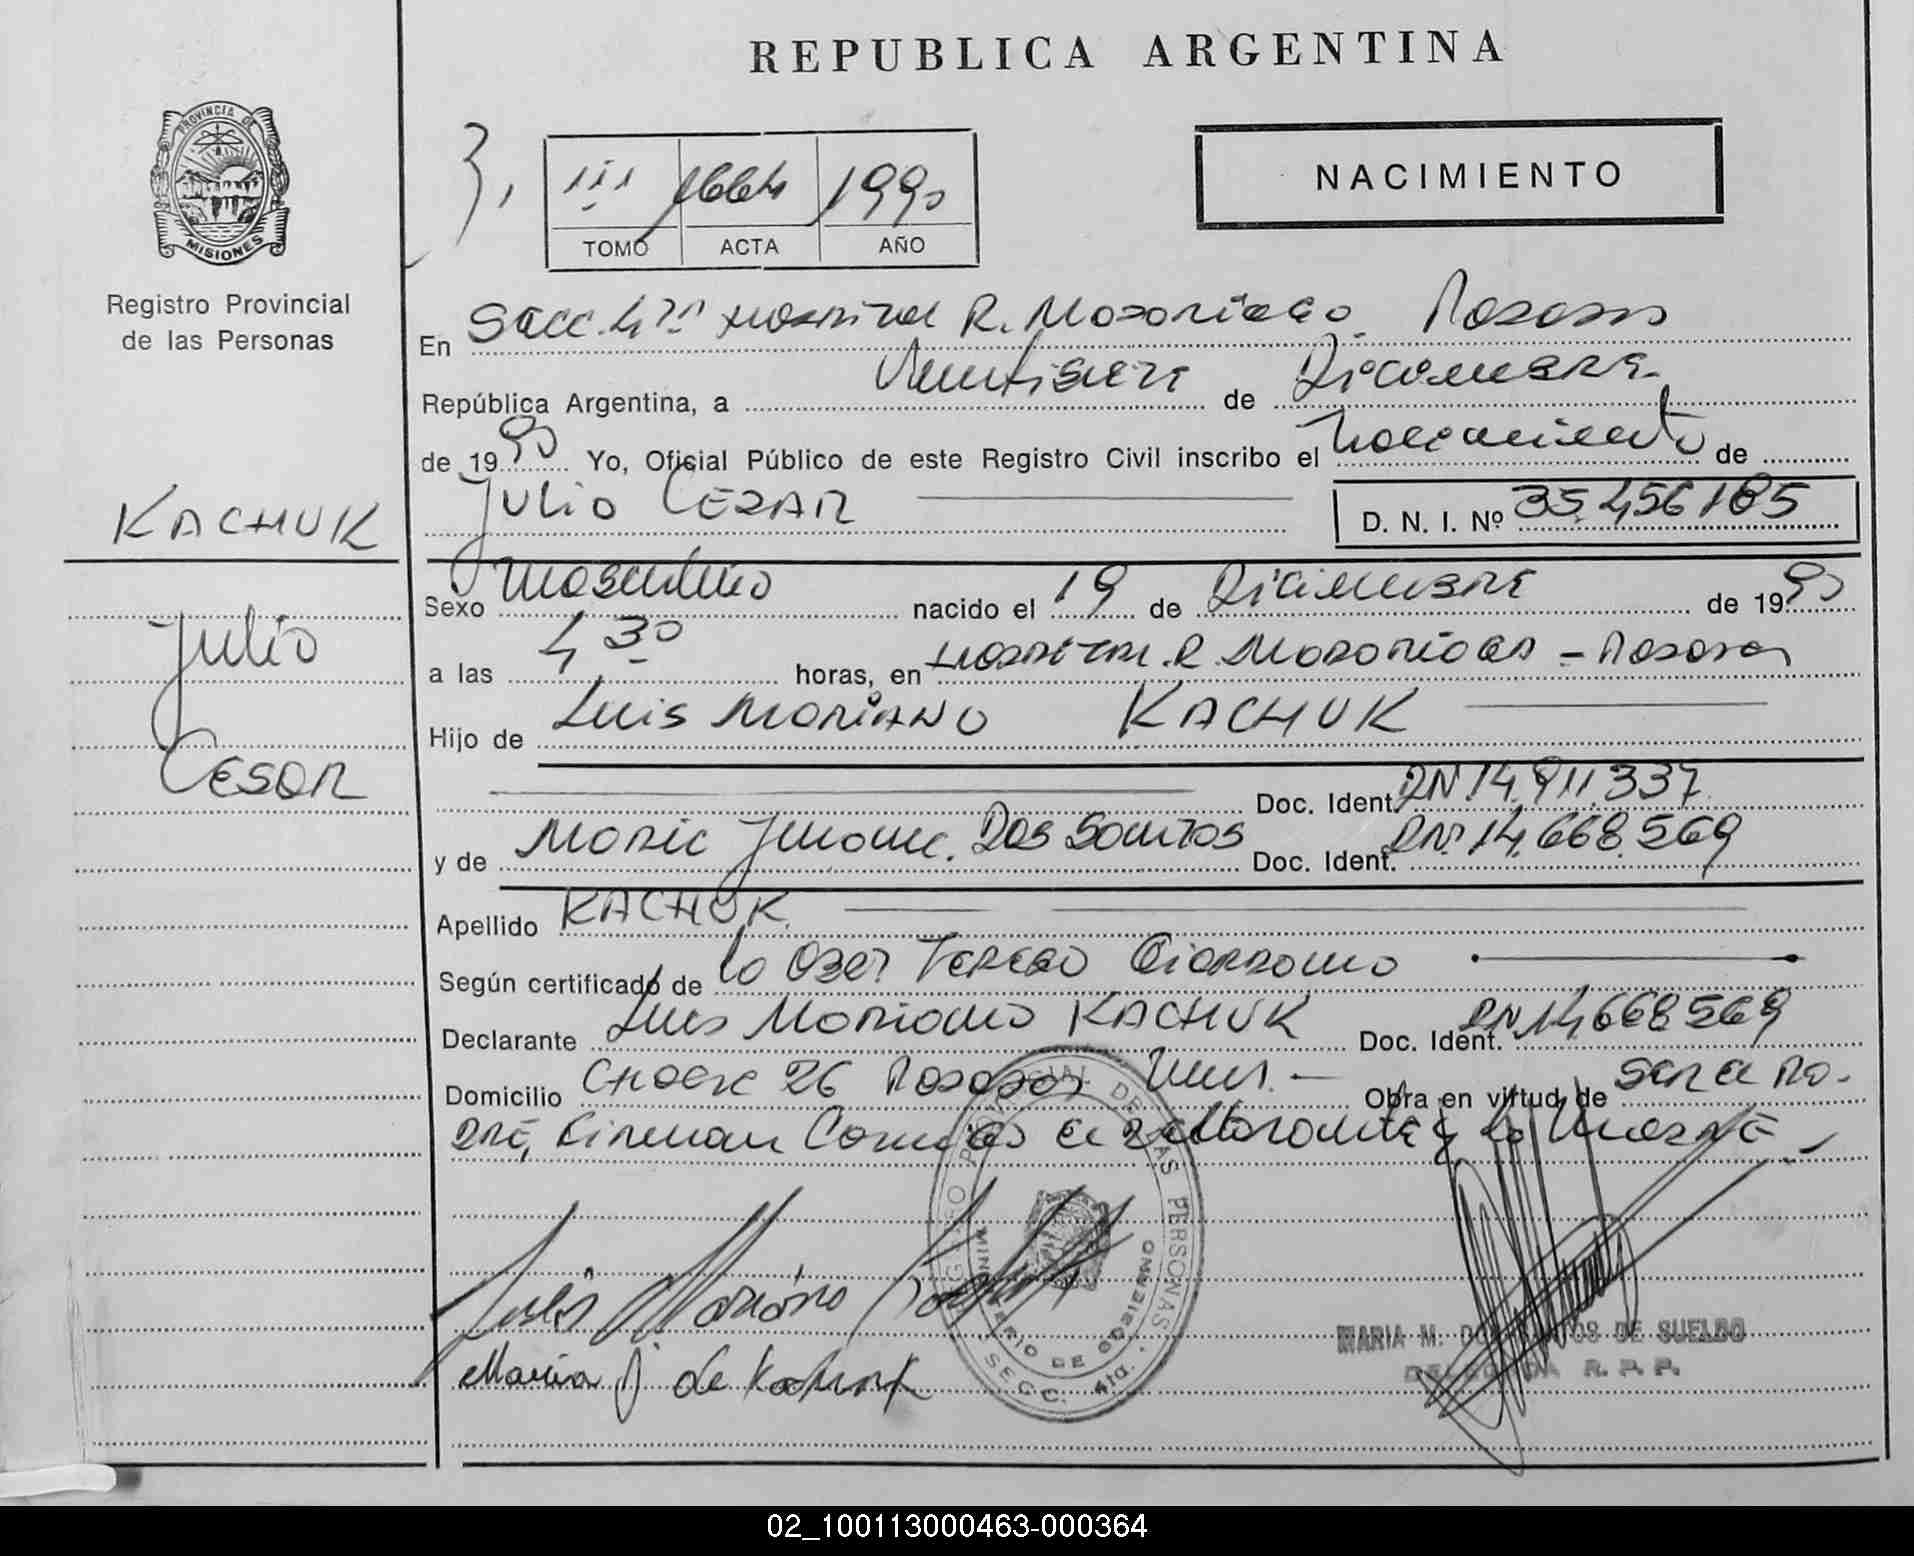 REPUBLICA ARGENTINA
PROVINCIA DE
MISIONES
Registro Provincial
de las Personas
3,
III 1990
TOMO ACTA AÑO
NACIMIENTO
En Secc. 4ta Hospital R. Madariaga. Posadas
República Argentina, a Veintisiete de Diciembre
de 1990 Yo, Oficial Público de este Registro Civil inscribo el nacimiento de
Julio Cezar D. N. I. Nº 35.456.185
KACHUK
Julio
Cesar
Sexo Masculino nacido el 19 de Diciembre de 1990
a las 4 30 horas, en Hospital R. Madariaga - Posadas
Hijo de Luis Mariano KACHUK
Doc. Ident. DNI 14.911.337
y de Dos Santos Doc. Ident. DNI 14.668.569
Apellido KACHUK
Según certificado de la Obst Teresa
Declarante Luis Mariano KACHUK Doc. Ident. DNI 14.668.569
Domicilio Chacra 26 Posadas Mnes. - Obra en virtud de ser el Pa-
dre, Firman Conmigo el declarante y la Madre -
Luis Mariano
Maria J. de Kachuk
REGISTRO PROVINCIAL DE LAS PERSONAS
MINISTERIO DE GOBIERNO
SECC. 4ta.
MARIA M. DOS SANTOS DE SUELDO
DELEGADA R. P. P.
02_100113000463-000364